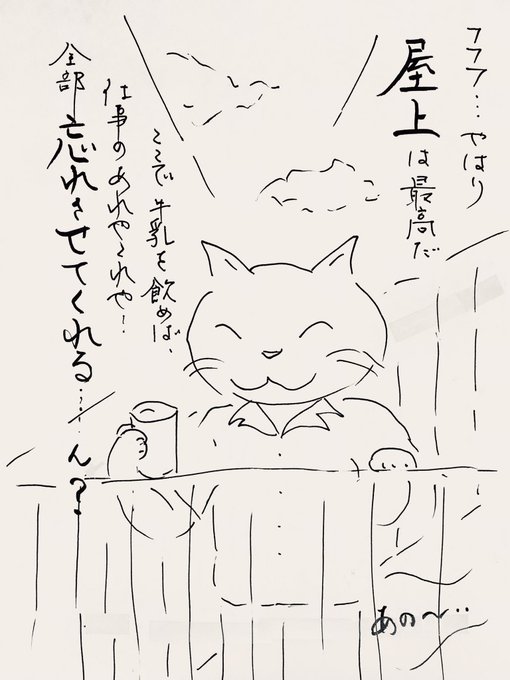 フフフ…やはり
屋上は最高だ
ここで牛乳を飲めば、
仕事のあれやこれや…
全部忘れさせてくれる…ん?
あの〜…